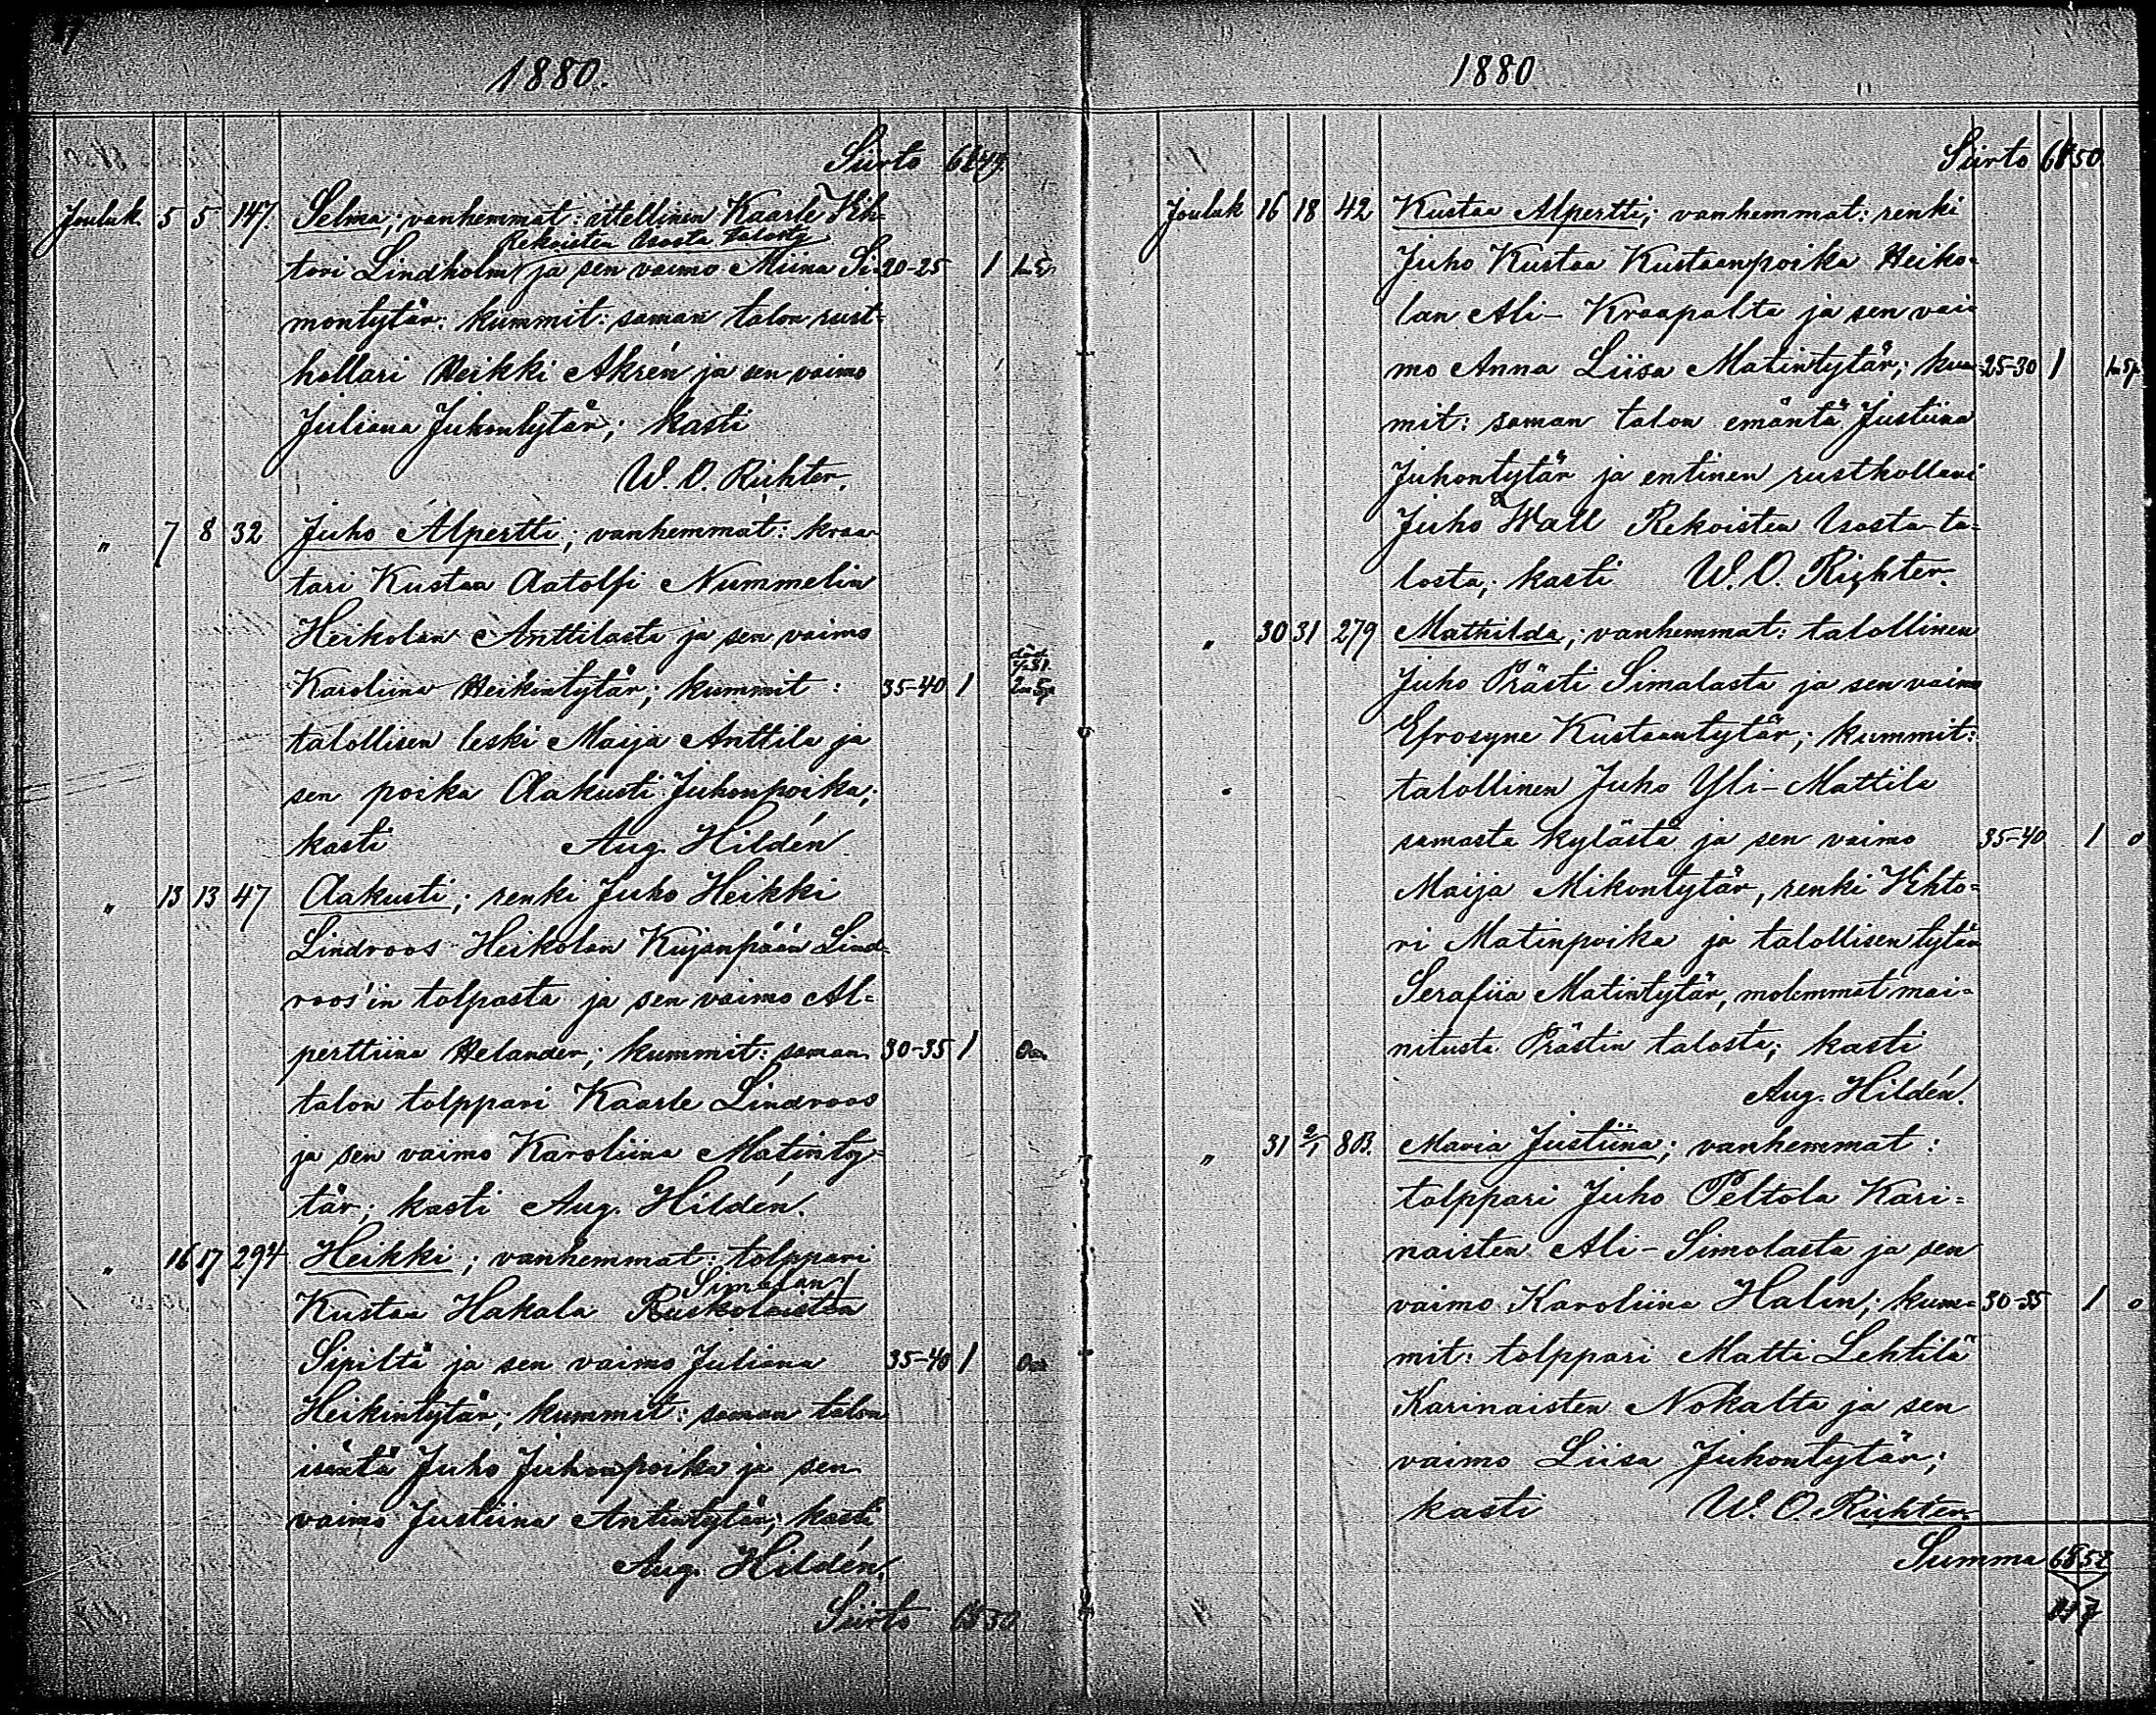 1880.
Siirto 61 49.
Jouluk. 5 5 147. Selma; vanhemmat: ittellinen Kaarle Vih-
Rekoisten Uosta talosta
tori Lindholm ja sen vaimo Miina Si- 20-25 1
montytär: kummit: saman talon rust-
hollari Heikki Akrén ja sen vaimo
Juliana Juhontytär; kasti
W. O. Richter.
„ 7 8 32 Juho Alpertti; vanhemmat: kraa-
tari Kustaa Aatolfi Nummelin
Heikolan Anttilasta ja sen vaimo
Karoliina Heikintytär; kummit: 35-40 1
talollisen leski Maija Anttila ja
sen poika Aakusti Juhonpoika;
kasti Aug. Hildén
„ 13 13 47 Aakusti; renki Juho Heikki
Lindroos Heikolan Kujanpään Lind-
roos'in tolpasta ja sen vaimo Al=
perttiina Helander; kummit: saman 30-35 1
talon tolppari Kaarle Lindroos
ja sen vaimo Karoliina Matinty-
tär; kasti Aug. Hildén.
„ 16 17 294 Heikki; vanhemmat: tolppari
Simalan
Kustaa Hakala Ruskolaisten
Sipiltä ja sen vaimo Juliana 35-40 1
Heikintytär; kummit: saman talon
isäntä Juho Juhonpoika ja sen
vaimo Justiina Antintytär; kasti
Aug. Hildén.
Siirto 65 50
1880
Siirto 65 50.
Jouluk 16 18 42 Kustaa Alpertti; vanhemmat: renki
Juho Kustaa Kustaanpoika Heiko=
lan Ali-Kraapalta ja sen vai=
mo Anna Liisa Matintytär; kum- 25-30 1
mit: saman talon emäntä Justiina
Juhontytär ja entinen rusthollari
Juho Wall Rekoisten Uosta-ta=
losta; kasti W. O. Richter.
„ 30 31 279 Mathilda; vanhemmat: talollinen
Juho Prästi Simalasta ja sen vaimo
Efrosyne Kustaantytär; kummit:
talollinen Juho Yli-Mattila
samasta kylästä ja sen vaimo 35-40 1 0
Maija Mikontytär, renki Vihto=
ri Matinpoika ja talollisen tytär
Serafiia Matintytär, molemmat mai=
nitusta Prästin talosta; kasti
Aug. Hildén.
„ 31 2/1 803. Maria Justiina; vanhemmat:
tolppari Juho Peltola Kari=
naisten Ali-Simolasta ja sen
vaimo Karoliina Halin; kum= 30-35 1 0
mit: tolppari Matti Lehtilä
Karinaisten Nokalta ja sen
vaimo Liisa Juhontytär;
kasti W. O. Richter.
Summa 65 52
117